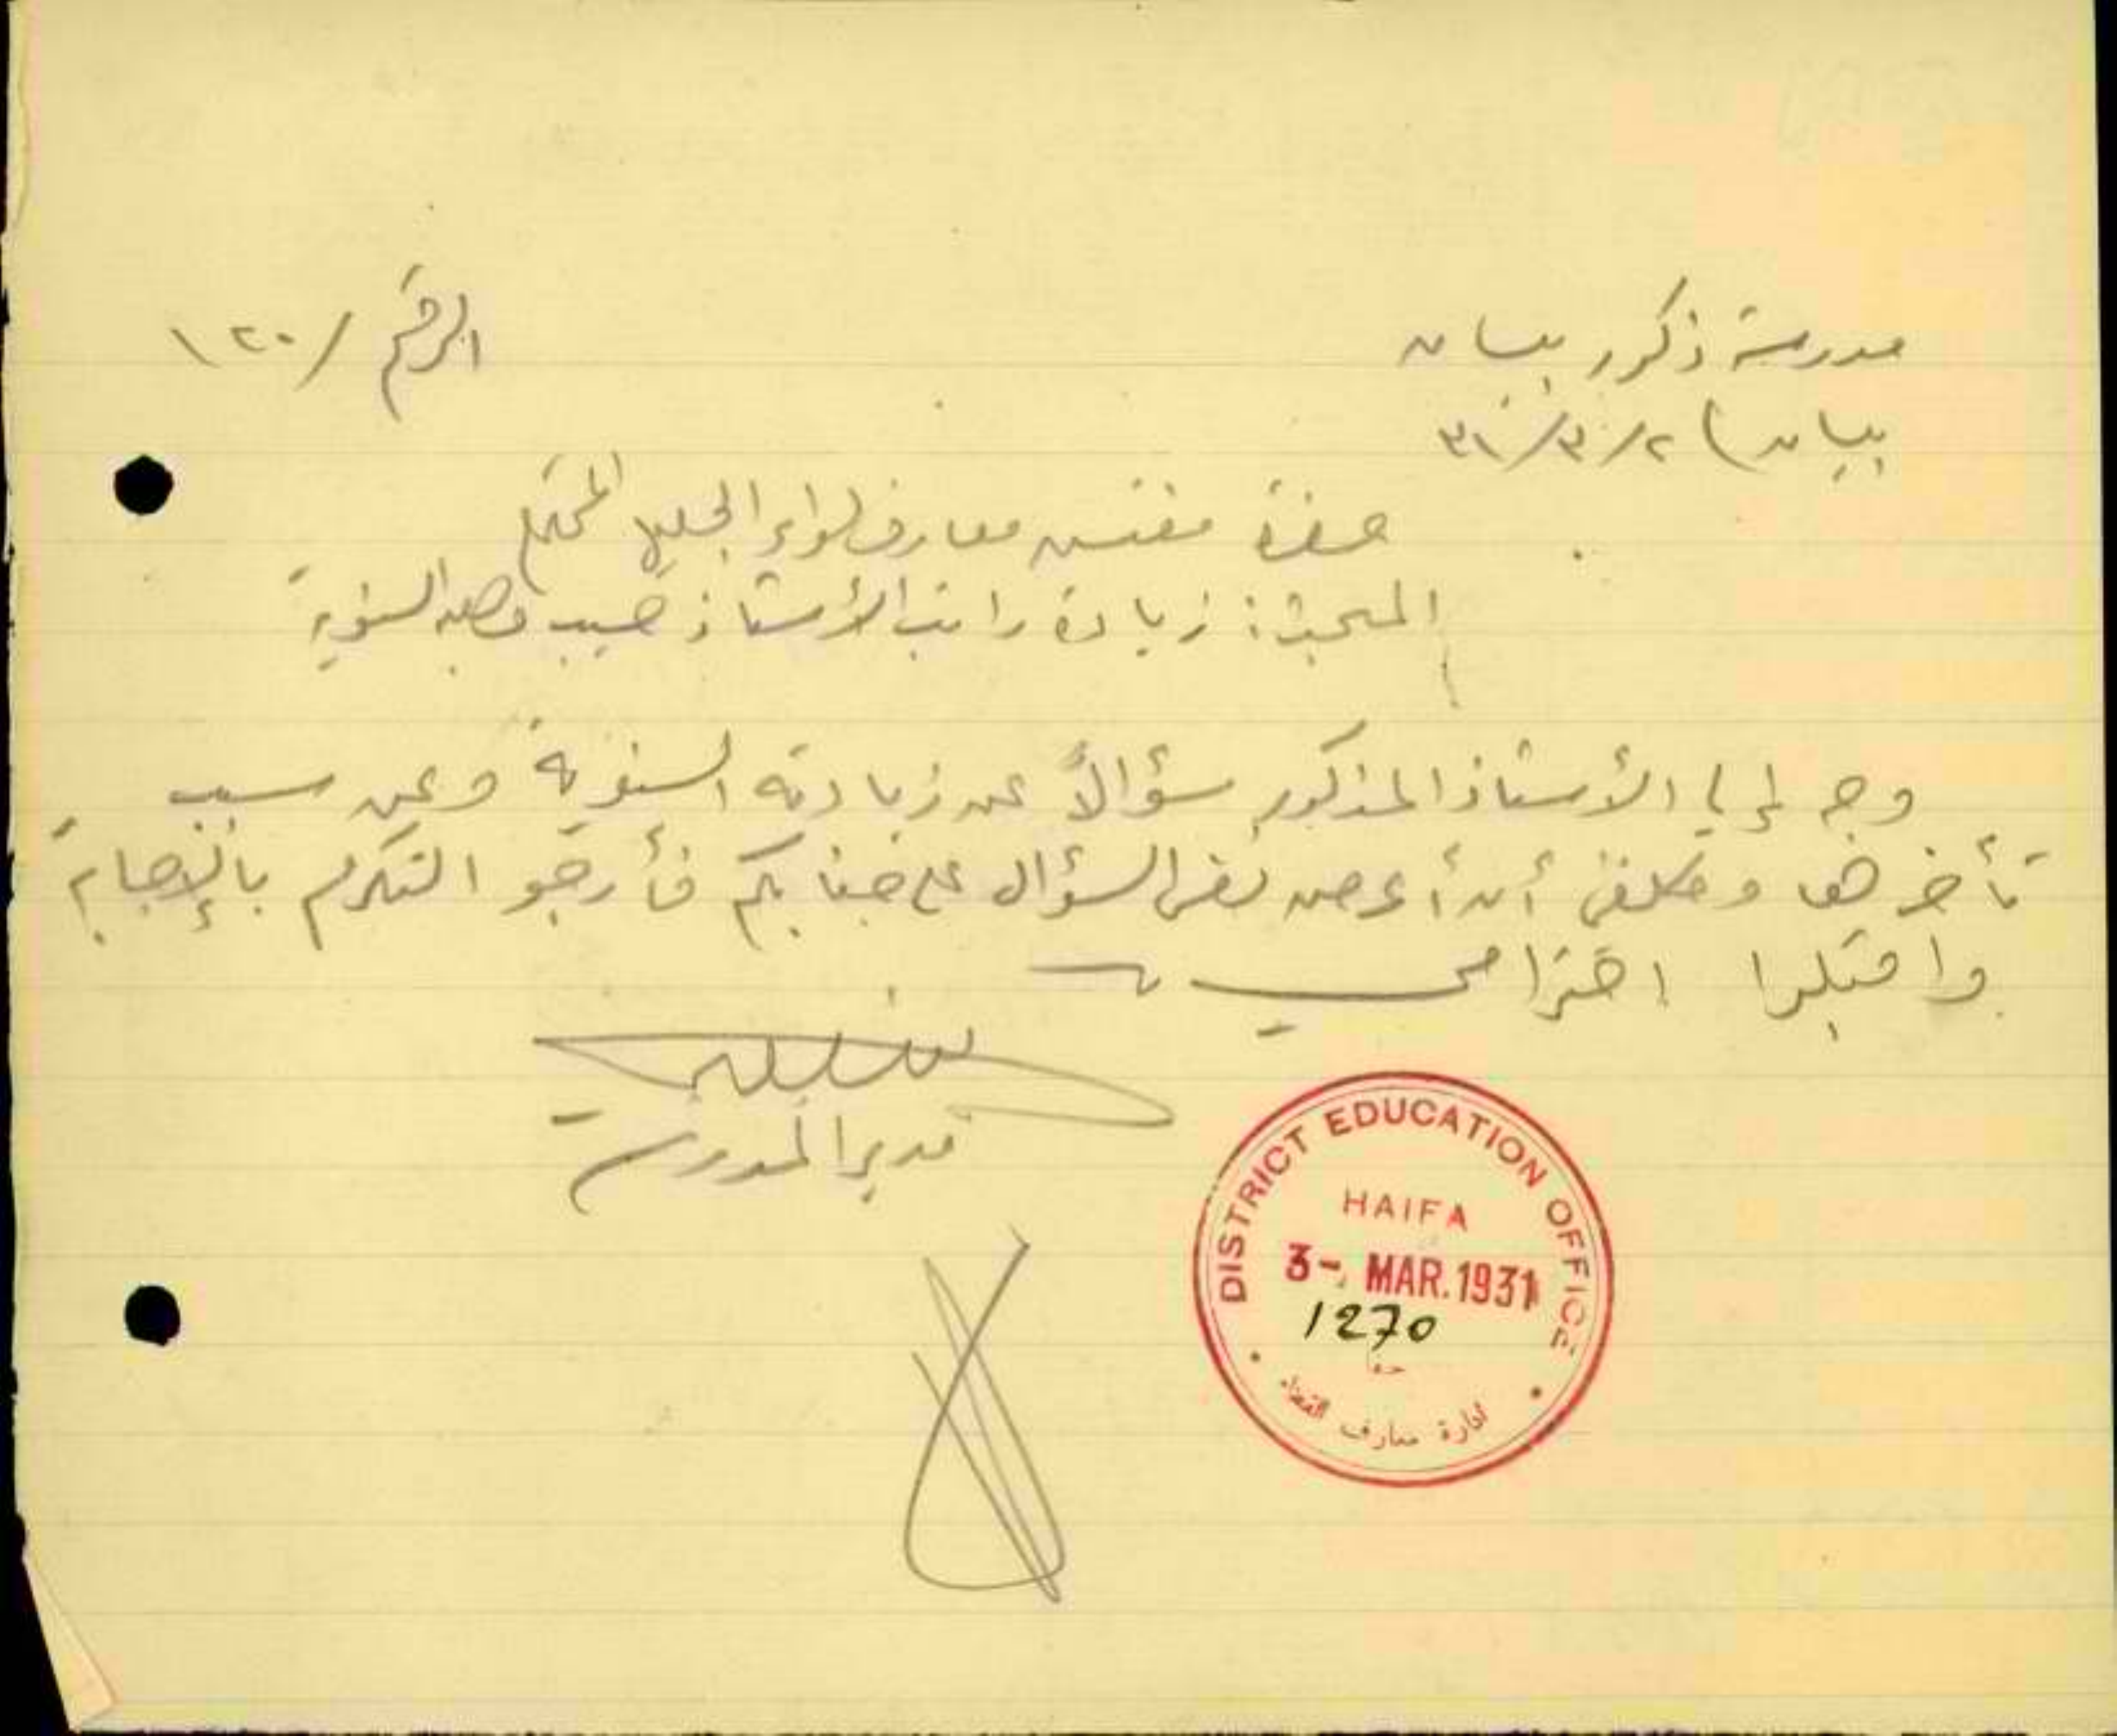 مدرسة ذكور بيسان
الرقم / ١٢٠
بيسان) ٢/٣/٣١
حضرة مفتش معارف لواء الجليل المحترم
المبحث: زيادة راتب الأستاذ حبيب السنوية
وجه إلي الأستاذ المذكور سؤالاً عن زيادته السنوية وعن سبب
تأخرها وكلفني أن أعرض نفس السؤال على جنابكم فأرجو التكرم بالإجابة
واقبلوا احترامي
مدير المدرسة
DISTRICT EDUCATION OFFICE
HAIFA
3 - MAR. 1931
1270
حيفا
ادارة معارف القضاء